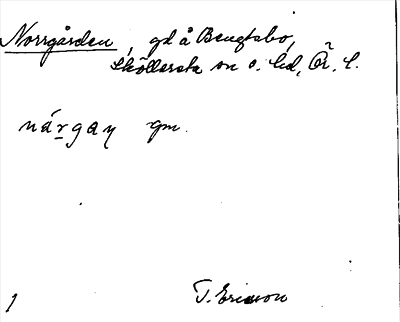 Norrgården, gd å Bengtsbo,
Sköllersta sn o. hd, Ör. l.
nárgaɳ gm.
T. Ericson
1